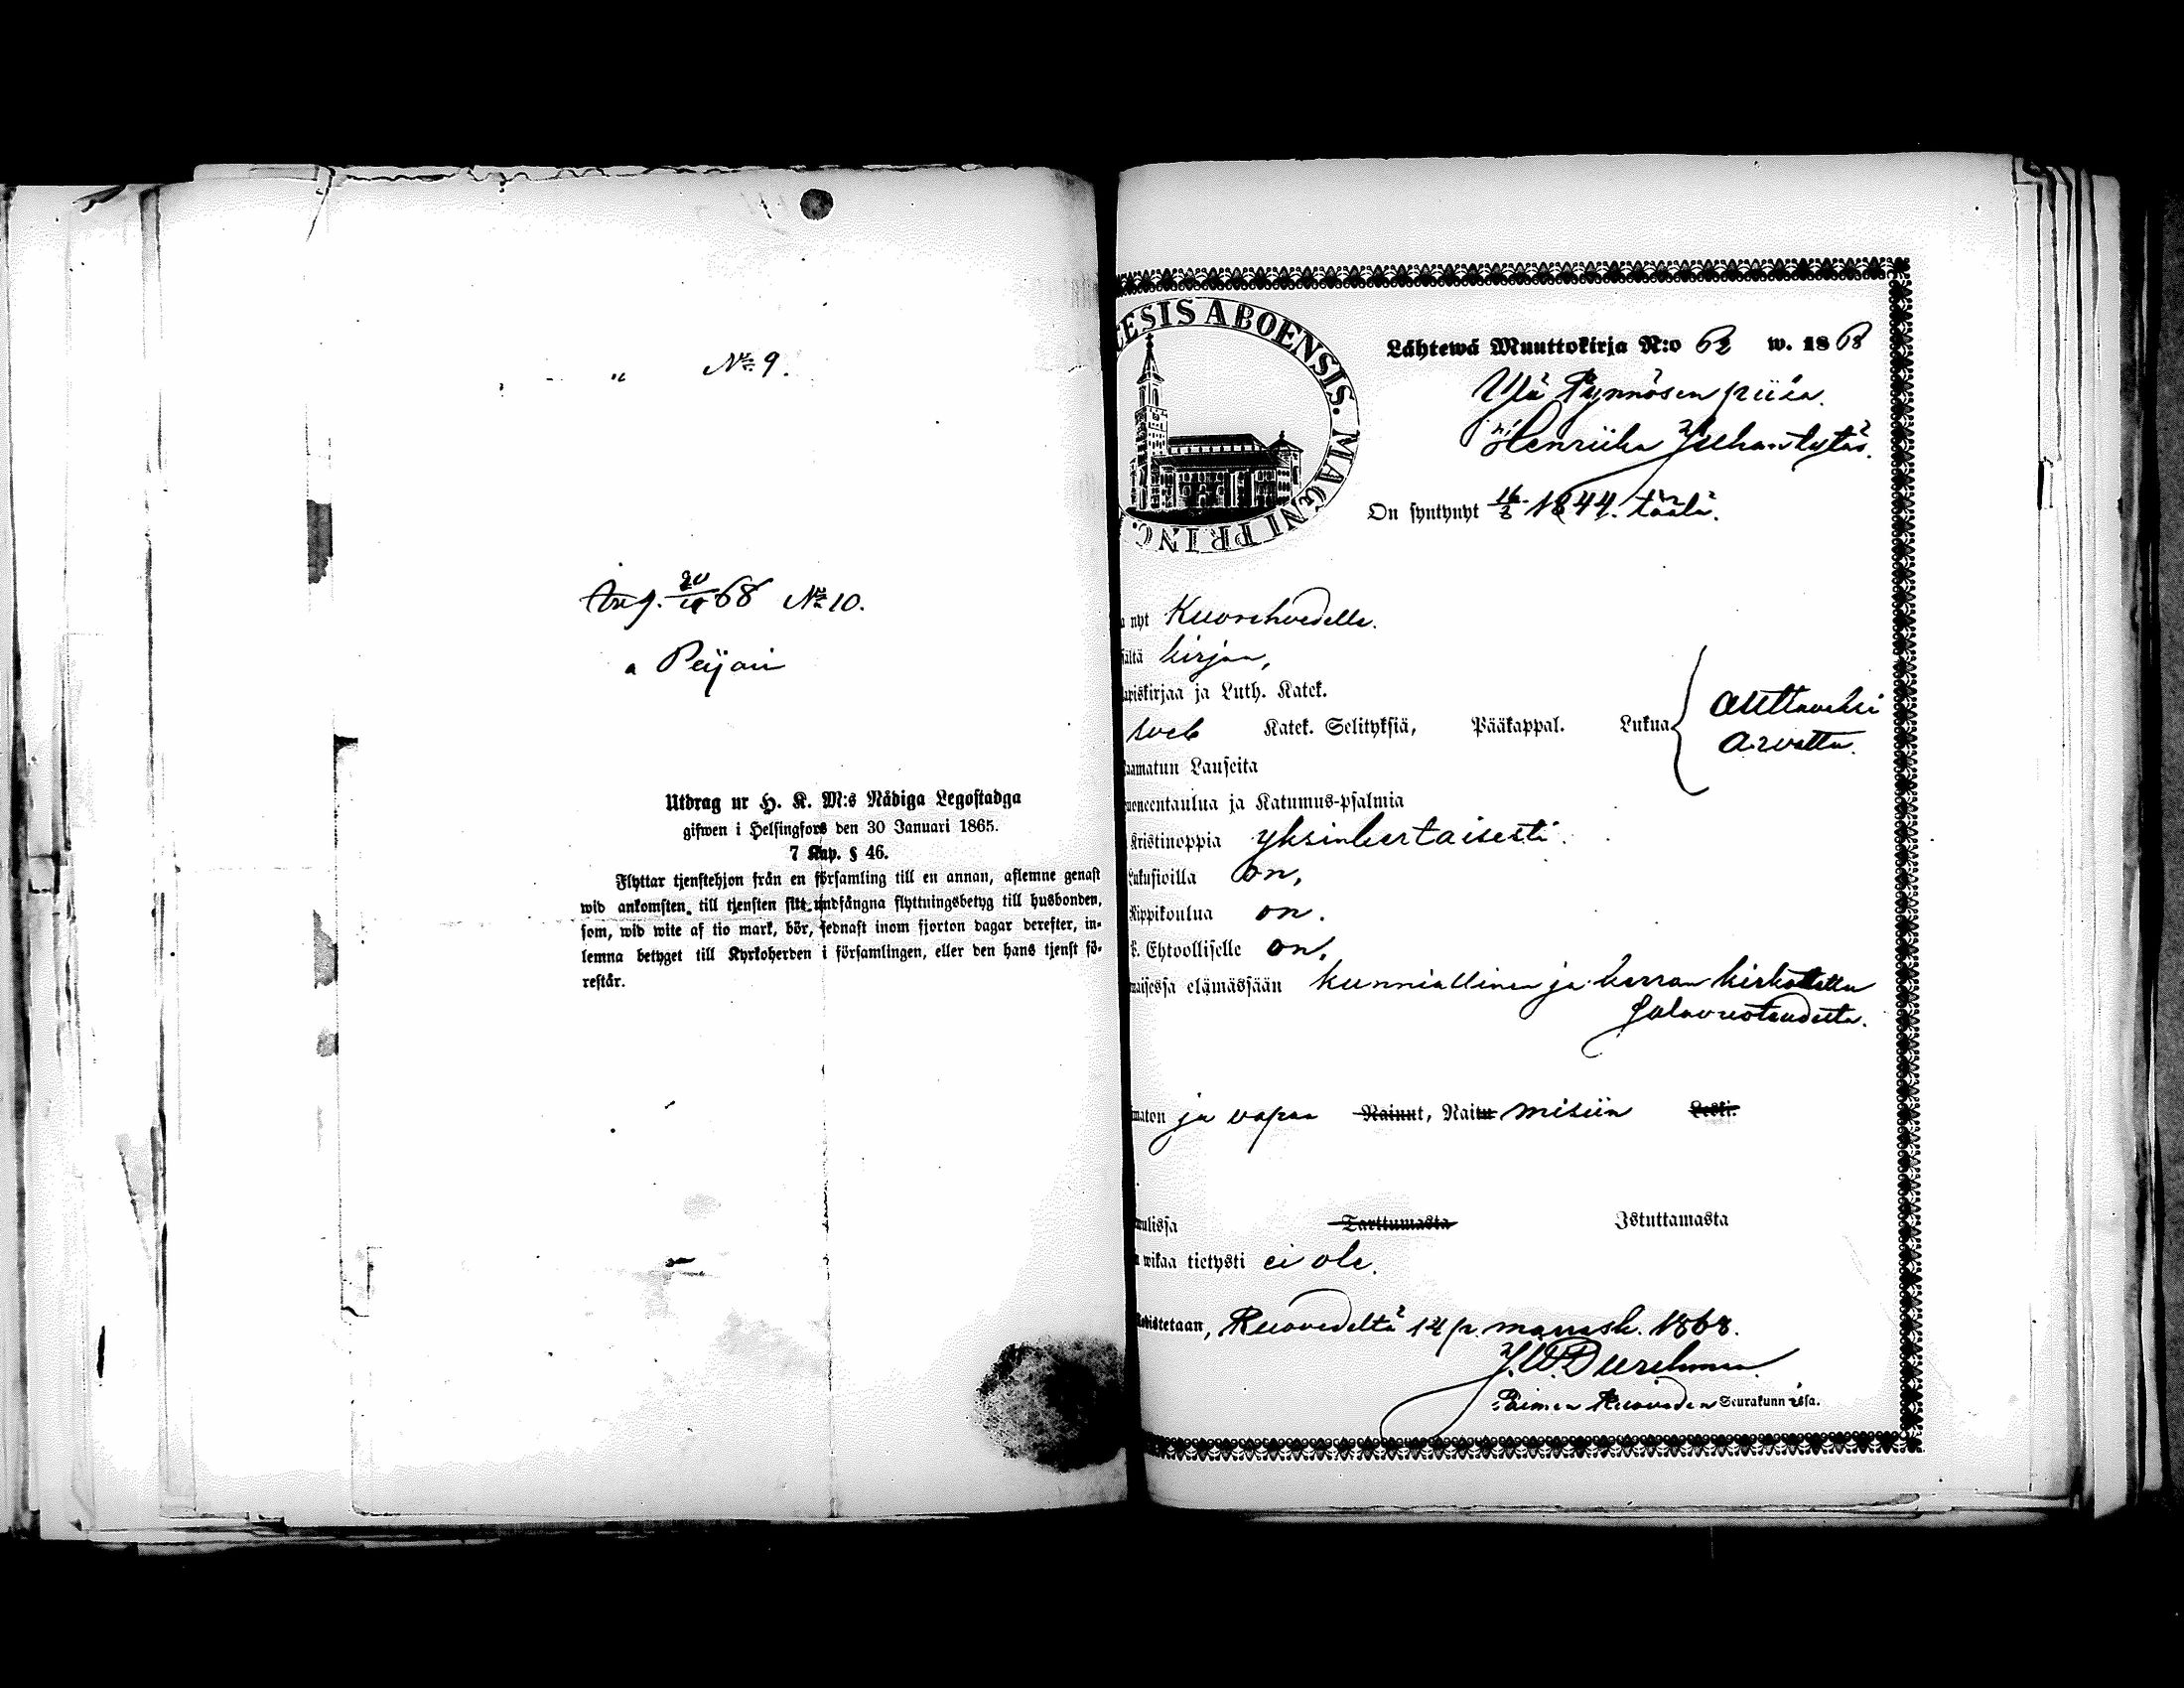 " № 9.
Ang. 20/10 68 № 10.
a Peijari
Utdrag ur H. K. M:s Nådiga Legostadga
gifwen i Helsingfors den 30 Januari 1865.
7 Kap. § 46.
Flyttar tjenstehjon från en församling till en annan, aflemne genast
wid ankomsten till tjensten sitt undfångna flyttningsbetyg till husbonden,
som, wid wite af tio mark, bör, sednast inom fjorton dagar derefter, in-
lemna betyget till Kyrkoherden i församlingen, eller den hans tjenst fö-
restår.
CESIS ABOENSIS. MAGNI PRINC.
Lähtewä Muuttokirja N:o 62 w. 1868
Ylä Pynnösen piika
Henriika Juhantytär.
On syntynyt 1844. täälä.
nyt Kuorehvedelle.
ältä kirjaa,
apiskirjaa ja Luth. Katek.
Katek. Selityksiä, Pääkappal. Lukua
auttavaksi
arvattu.
aamatun Lauseita
uoneentaulua ja Katumus-psalmia
Kristinoppia yksinkertaisesti.
Lukusioilla on,
Rippikoulua on.
k. Ehtoolliselle on,
maisessa elämässään kunniallinen ja kerran kirkotettu
salavuoteudesta.
maton ja vapaa Nainut, Naitu misiin Leski.
wulissa Tarttumasta Istuttamasta
wikaa tietysti ei ole.
distetaan, Ruovedeltä 14 p. marrask. 1868.
Paimen Ruoveden Seurakunnissa.